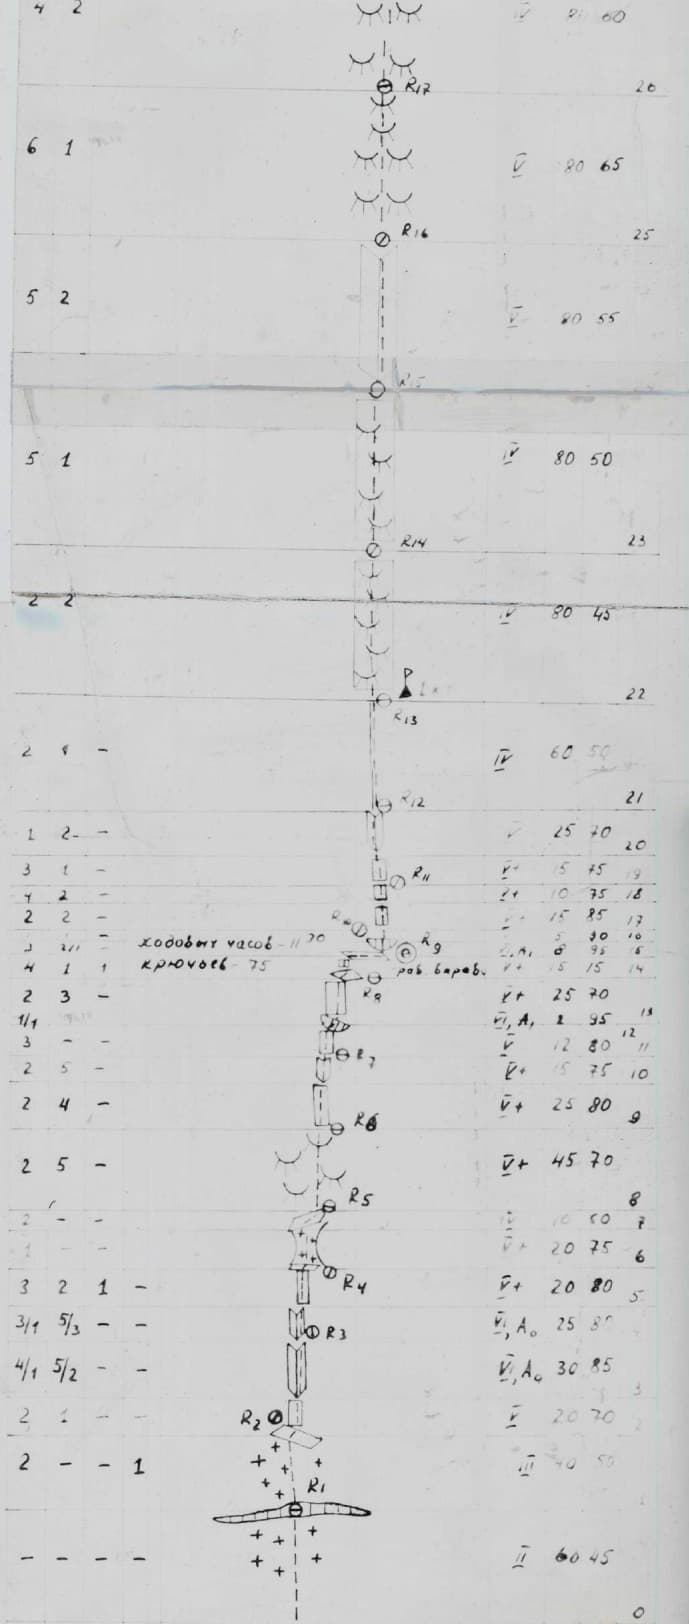 4 2 IV 80 60
R17
26
6 1 V 80 65
R16 25
5 2 V 80 55
R15
5 1 IV 80 50
R14 23
2 2 IV 80 45
22
R13
2 1 - IV 60 50
R12 21
1 2 - V 25 70
20
3 1 - V+ 15 75 19
R11
4 2 - V+ 10 75 18
2 2 - V+ 15 85 17
ходовых часов - 11 30 R9 16
крючьев - 75 раб. бараб.
4 1 1 V+ 15 15 14
R8
2 3 - V+ 25 70
1/1 VI, A1 2 95 13
12
3 - - V 12 80 11
R7
2 5 - V+ 15 75 10
2 4 - V+ 25 80 9
R6
2 5 - V+ 45 70
8
R5
2 - - 7
1 - - V+ 20 75 6
R4
3 2 1 - V+ 20 80 5
3/1 5/3 - - VI, A0 25 85
R3
4/1 5/2 - - VI, A0 30 85
3
2 1 - - V 20 70
R2
2 - - 1 III 40 50
R1
- - - - II 60 45
0